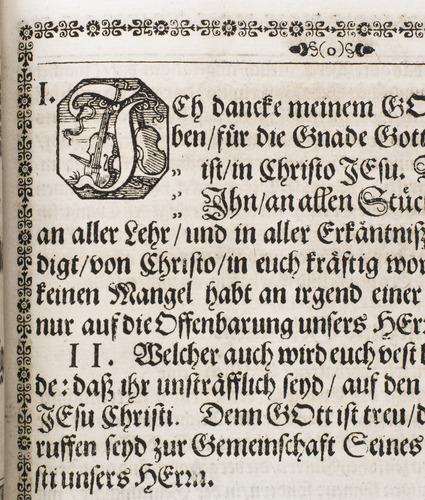 (o)
I.
ICh dancke meinem GO
ben/für die Gnade Gott
„ ist/in Christo JEsu.
„ Ihn/an allen Stüc
an aller Lehr/und in aller Erkäntniß
digt/von Christo/in euch kräftig wor
keinen Mangel habt an irgend einer
nur auf die Offenbarung unsers HErr
II. Welcher auch wird euch vest b
de: daß ihr unsträfflich seyd/auf den
JEsu Christi. Denn GOtt ist treu/d
ruffen seyd zur Gemeinschaft Seines
sti unsers HErrn.